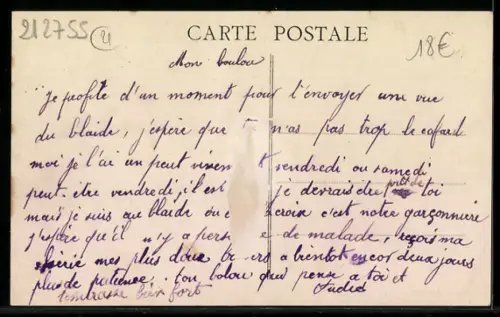 212755 21
CARTE POSTALE
18€
Mon loulou
Je profite d'un moment pour t'envoyer une vue
du blaide, j'espère que t n'as pas trop le cafard
moi je l'ai un peut vivem t vendredi ou samedi
peut-être vendredi, il est je devrais être près de toi
mais je suis au blaide ou c'est notre garçonniere
j'espère qu'il n'y a pers e de malade, reçois ma
cherie mes plus doux b ers a bientot encor deux jours
plus de patience. ton qui pense a toi et
t'embrasse bien fort